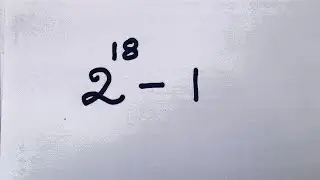 2¹⁸ - 1